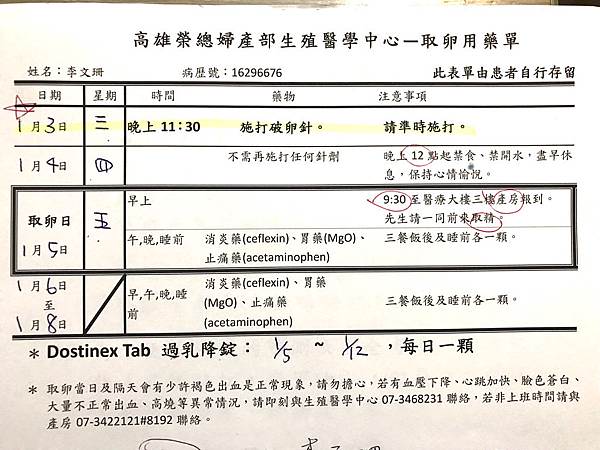 高雄榮總婦產部生殖醫學中心－取卵用藥單
姓名：李文珊 病歷號：16296676 此表單由患者自行存留
日期 星期 時間 藥物 注意事項
1月3日 三 晚上 11：30 施打破卵針。 請準時施打。
1月4日 四 不需再施打任何針劑 晚上 12 點起禁食、禁開水，盡早休
息，保持心情愉悅。
取卵日 五 早上 9:30 至醫療大樓三樓產房報到。
先生請一同前來取精。
1月5日 午,晚,睡前 消炎藥(ceflexin)、胃藥(MgO)、 三餐飯後及睡前各一顆。
止痛藥(acetaminophen)
1月6日 早,午,晚,睡 消炎藥(ceflexin)、胃藥
至 前 (MgO)、止痛藥 三餐飯後及睡前各一顆。
1月8日 (acetaminophen)
＊ Dostinex Tab 過乳降錠： 1/5 ~ 1/12 ，每日一顆
＊ 取卵當日及隔天會有少許褐色出血是正常現象，請勿擔心，若有血壓下降、心跳加快、臉色蒼白、
大量不正常出血、高燒等異常情況，請即刻與生殖醫學中心 07-3468231 聯絡，若非上班時間請與
產房 07-3422121#8192 聯絡。